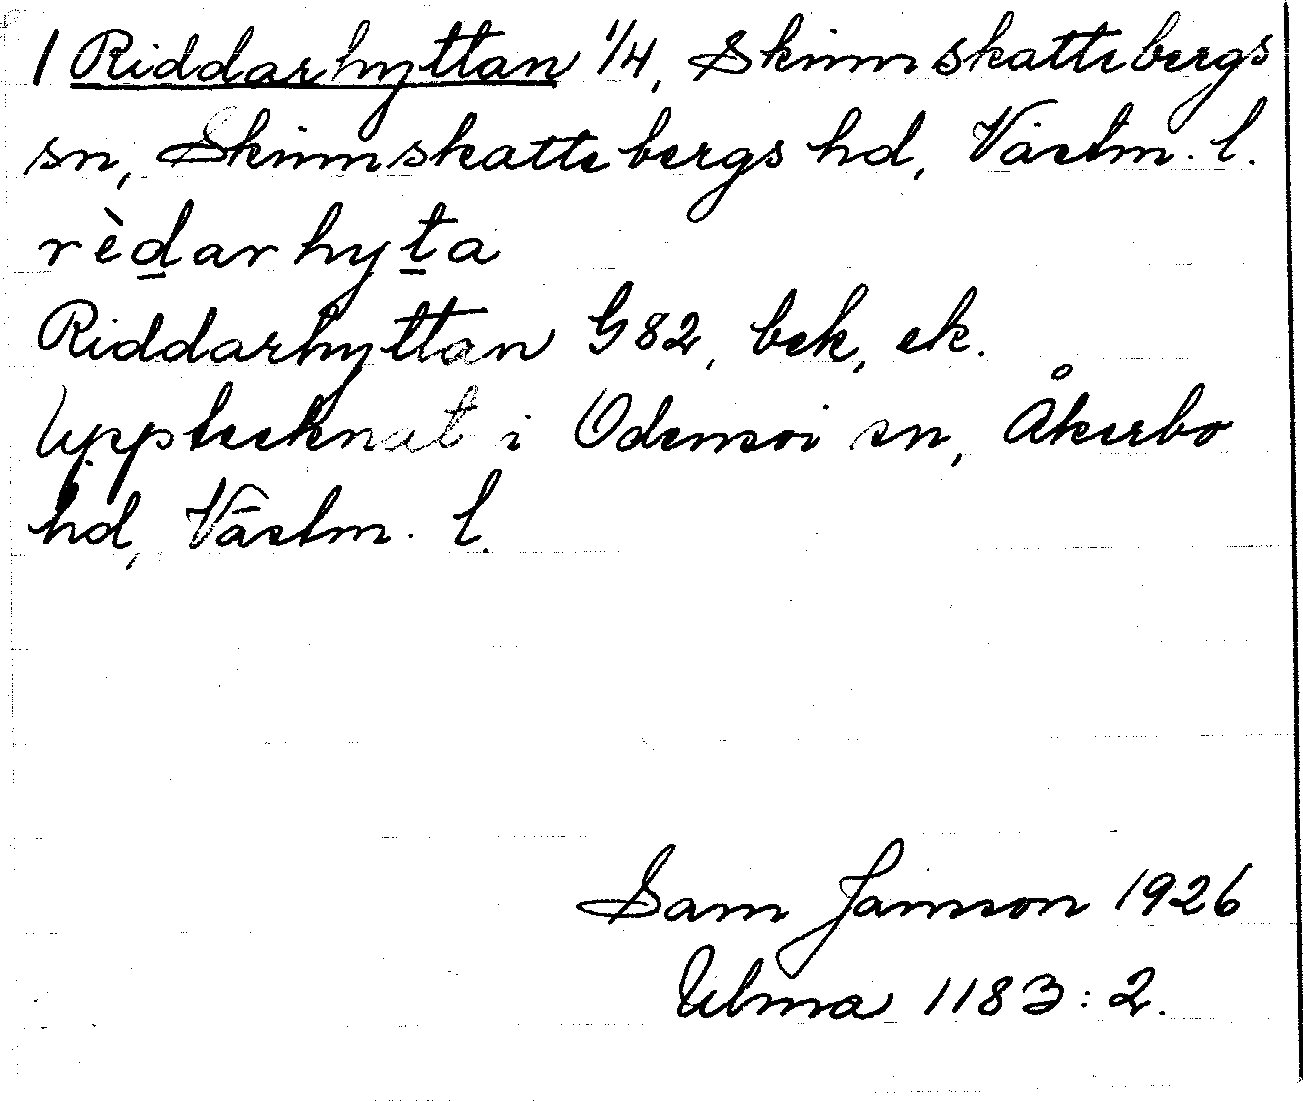 1 Riddarhyttan 1/4, Skinnskattebergs
sn, Skinnskattebergs hd, Västm. l.
rèd̲arhyt̲a
Riddarhyttan G82, bek, ek.
Upptecknat i Odensvi sn, Åkerbo
hd, Västm. l.
Sam Jansson 1926
Ulma 1183:2.